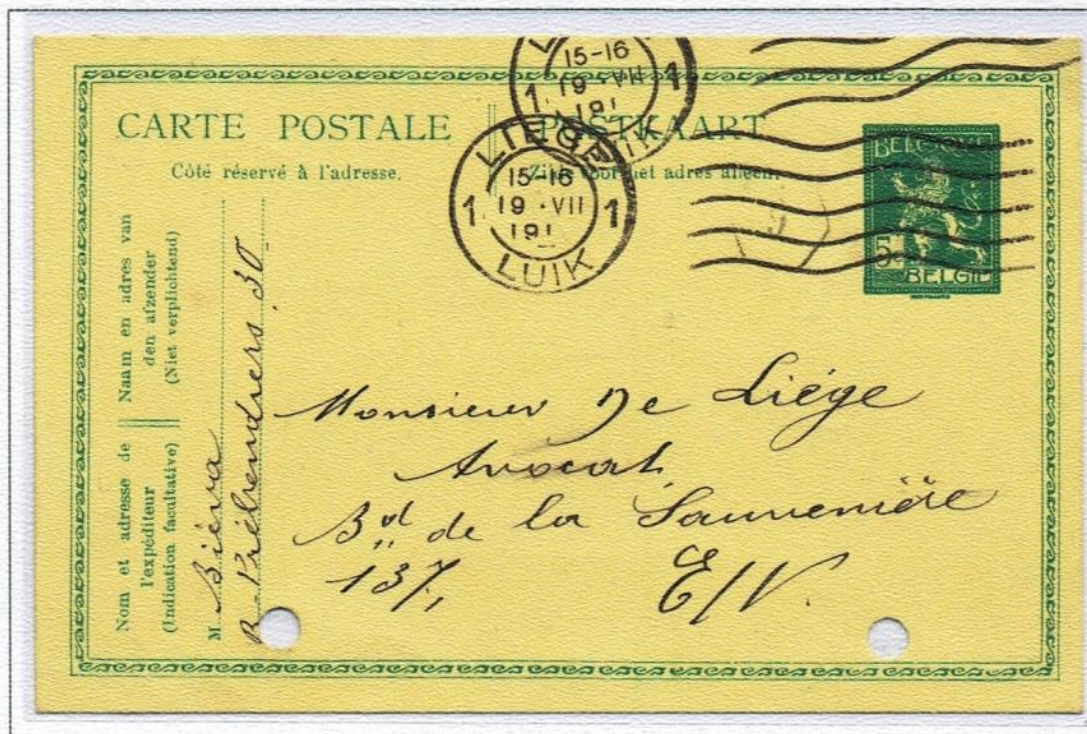 CARTE POSTALE
Côté réservé à l'adresse.
POSTKAART
Zijde voor het adres alleen.
15-16
19 · VII
191
1 1
LIEGE
1 15-16 1
19 · VII
191
LUIK
BELGIQUE
5
BELGIË
Nom et adresse de l'expéditeur
(Indication facultative)
Naam en adres van den afzender
(Niet verplichtend)
M
R. Prébendiers 30
Monsieur De Liége
Avocat
Bd de la Sauvenière
137,
E/V.